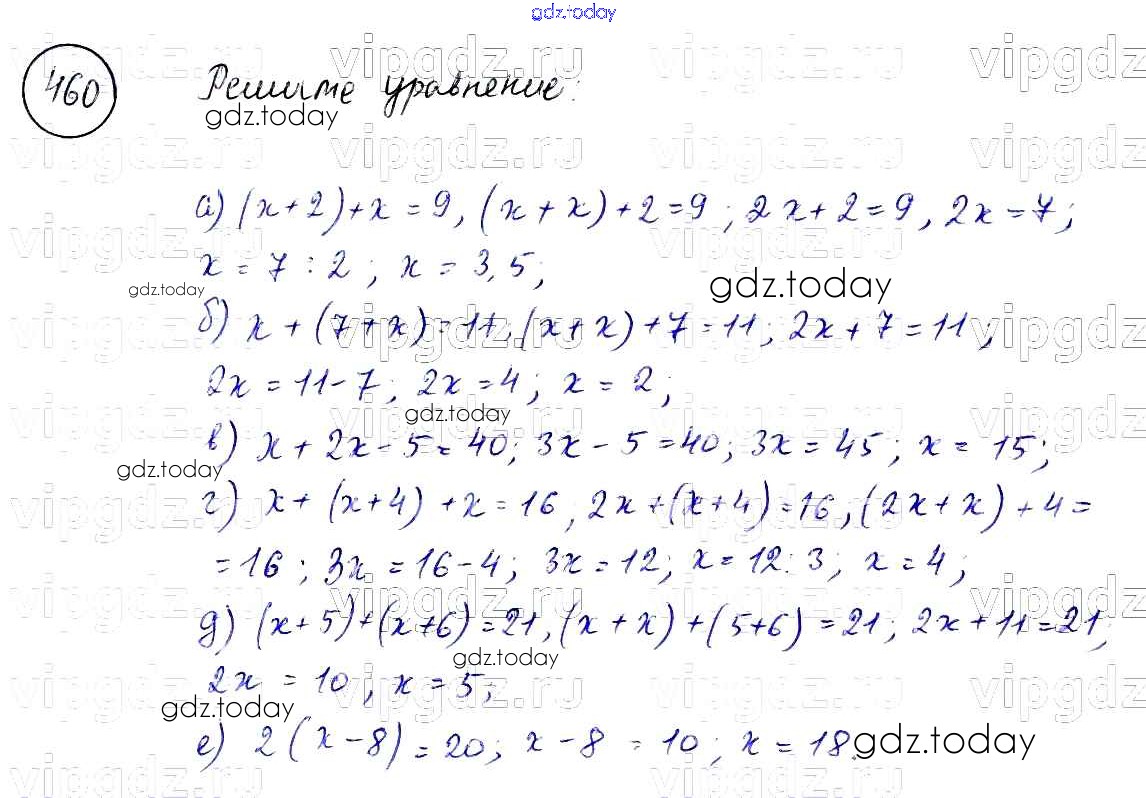 gdz.today
460 Решите уравнение:
а) (x+2)+x=9, (x+x)+2=9; 2x+2=9, 2x=7;
x=7:2; x=3,5;
б) x+(7+x)=11, (x+x)+7=11; 2x+7=11;
2x=11-7; 2x=4; x=2;
в) x+2x-5=40; 3x-5=40; 3x=45; x=15;
г) x+(x+4)+x=16, 2x+(x+4)=16, (2x+x)+4=
=16; 3x=16-4; 3x=12; x=12:3; x=4;
д) (x+5)+(x+6)=21, (x+x)+(5+6)=21; 2x+11=21;
2x=10, x=5;
е) 2(x-8)=20; x-8=10; x=18.